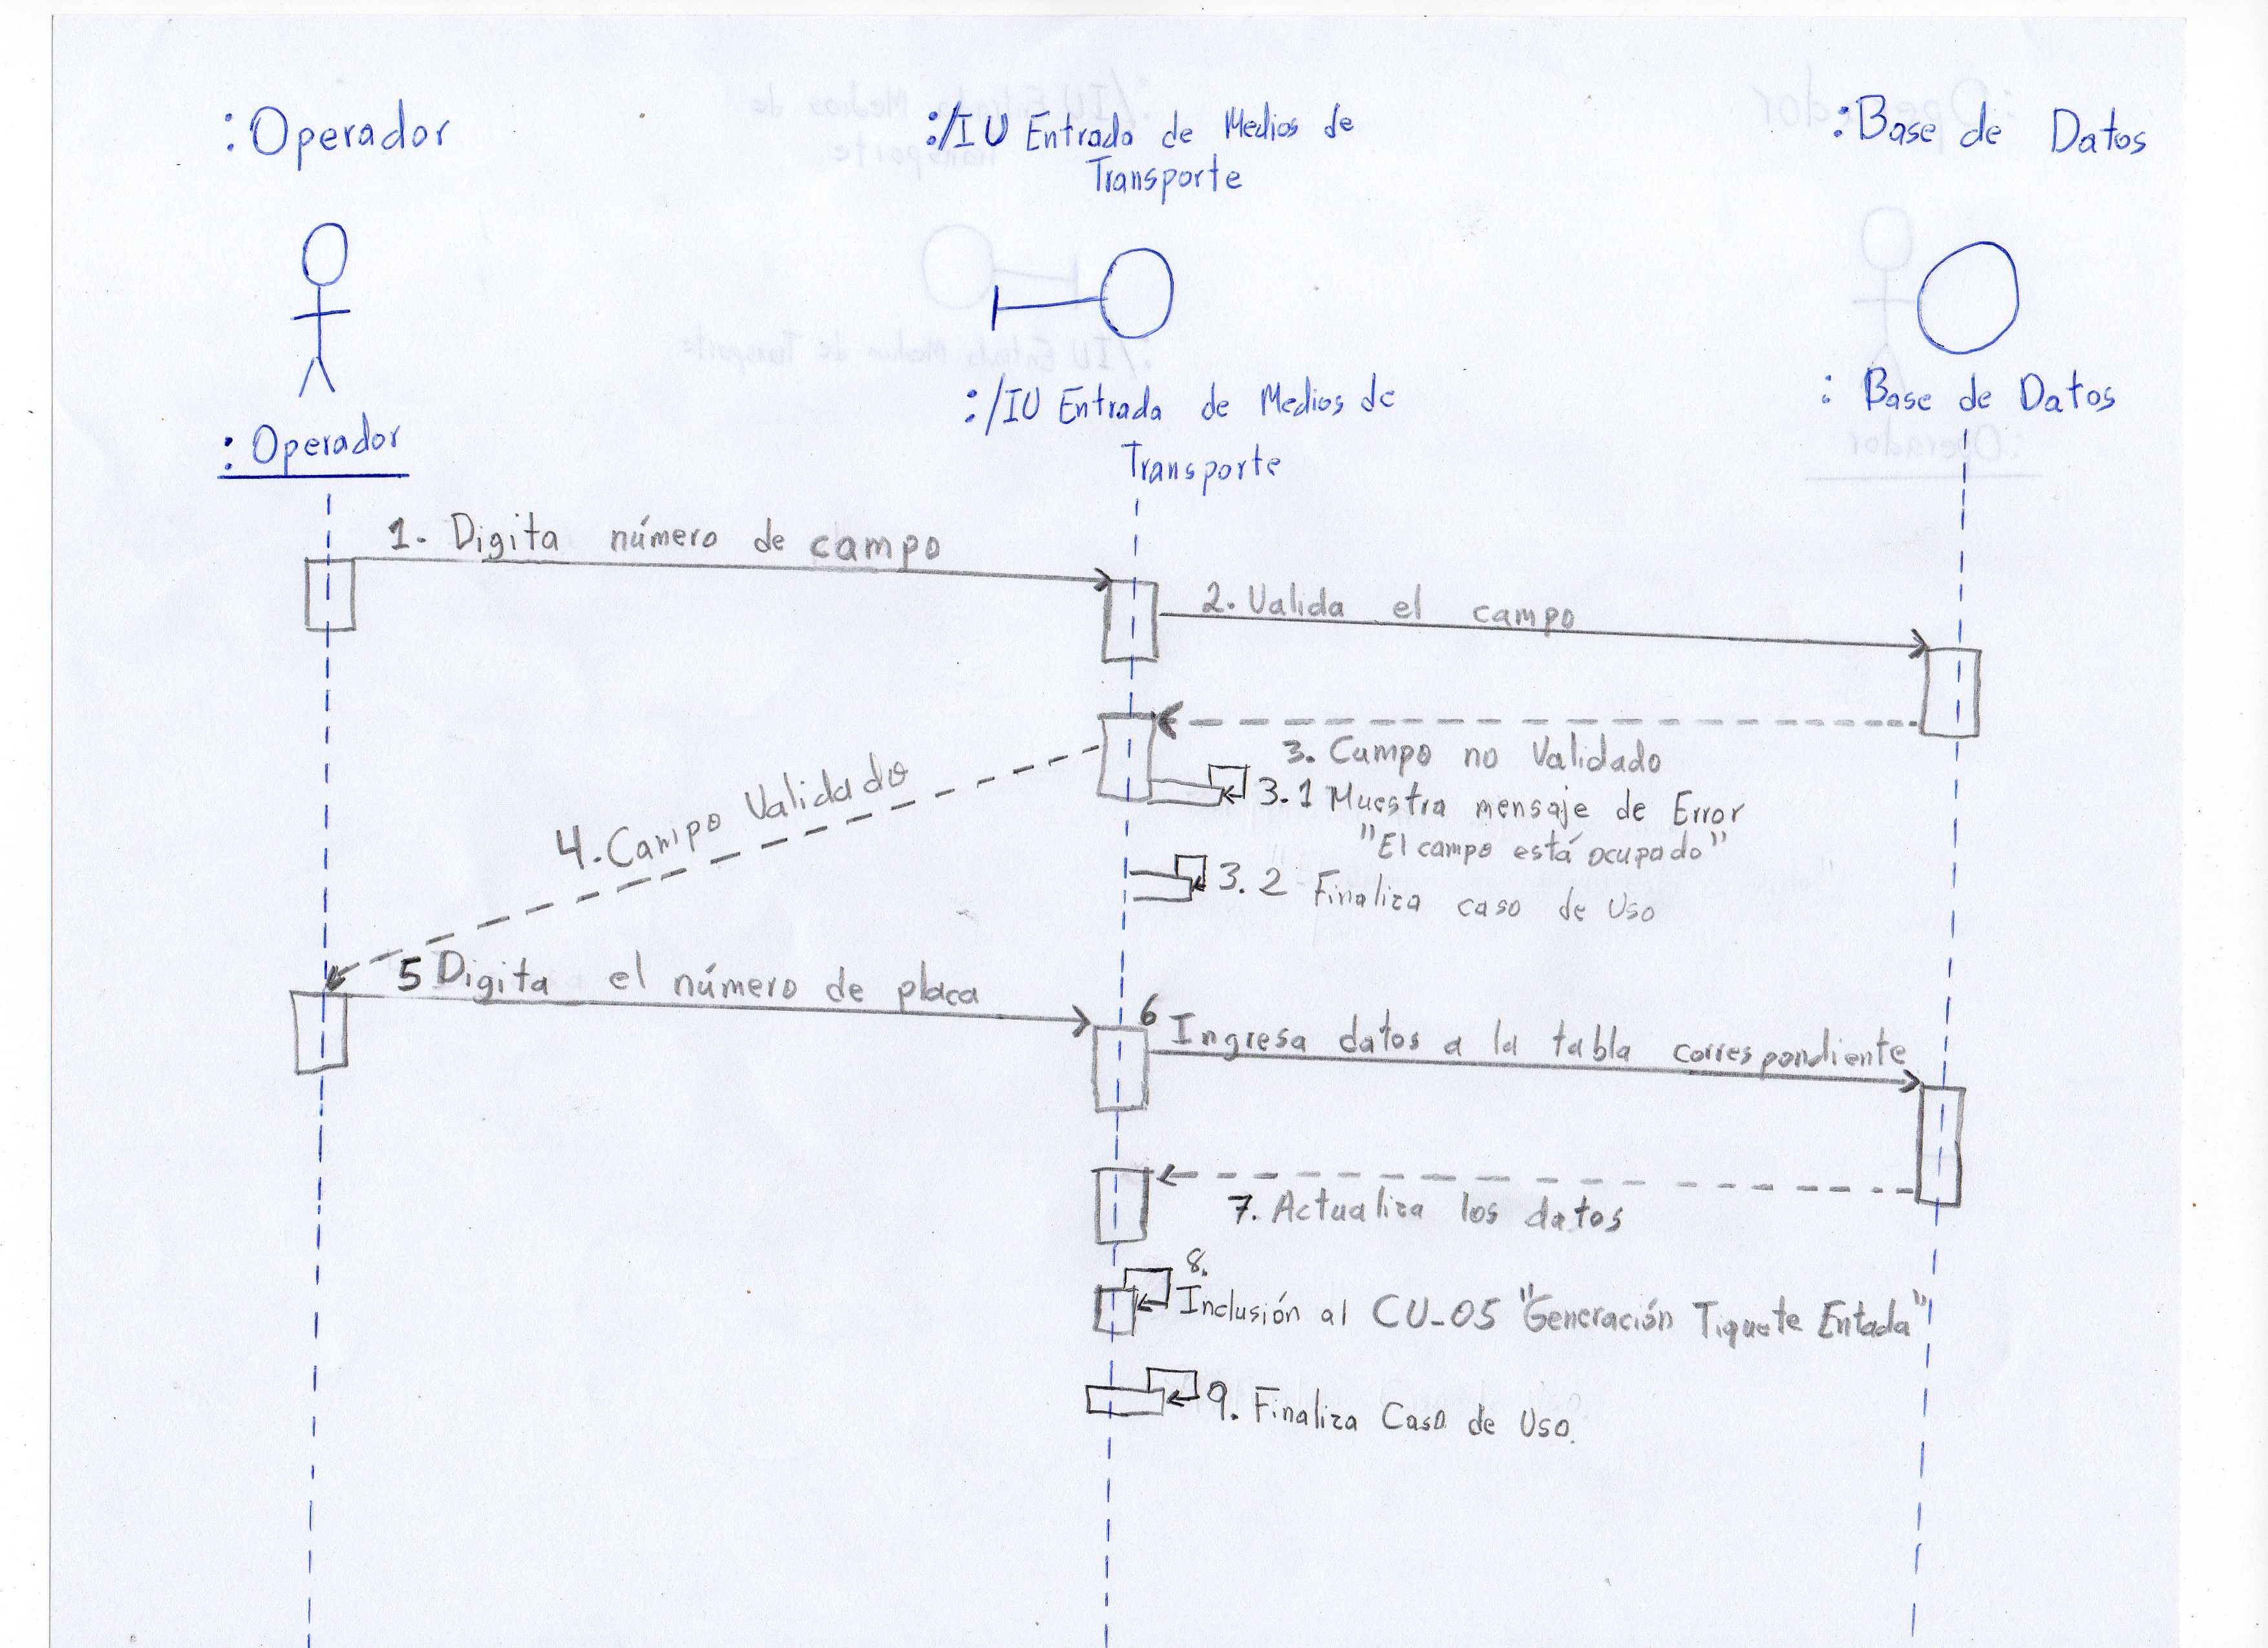 :Operador
:/IU Entrada de Medios de
Transporte
:Base de Datos
:Operador
:/IU Entrada de Medios de
Transporte
: Base de Datos
1. Digita número de campo
2. Valida el campo
3. Campo no Validado
3.1 Muestra mensaje de Error
"El campo está ocupado"
4. Campo Validado
3.2 Finaliza caso de Uso
5 Digita el número de placa
6 Ingresa datos a la tabla correspondiente
7. Actualiza los datos
8.
Inclusión al CU-05 "Generación Tiquete Entada"
9. Finaliza Caso de Uso.